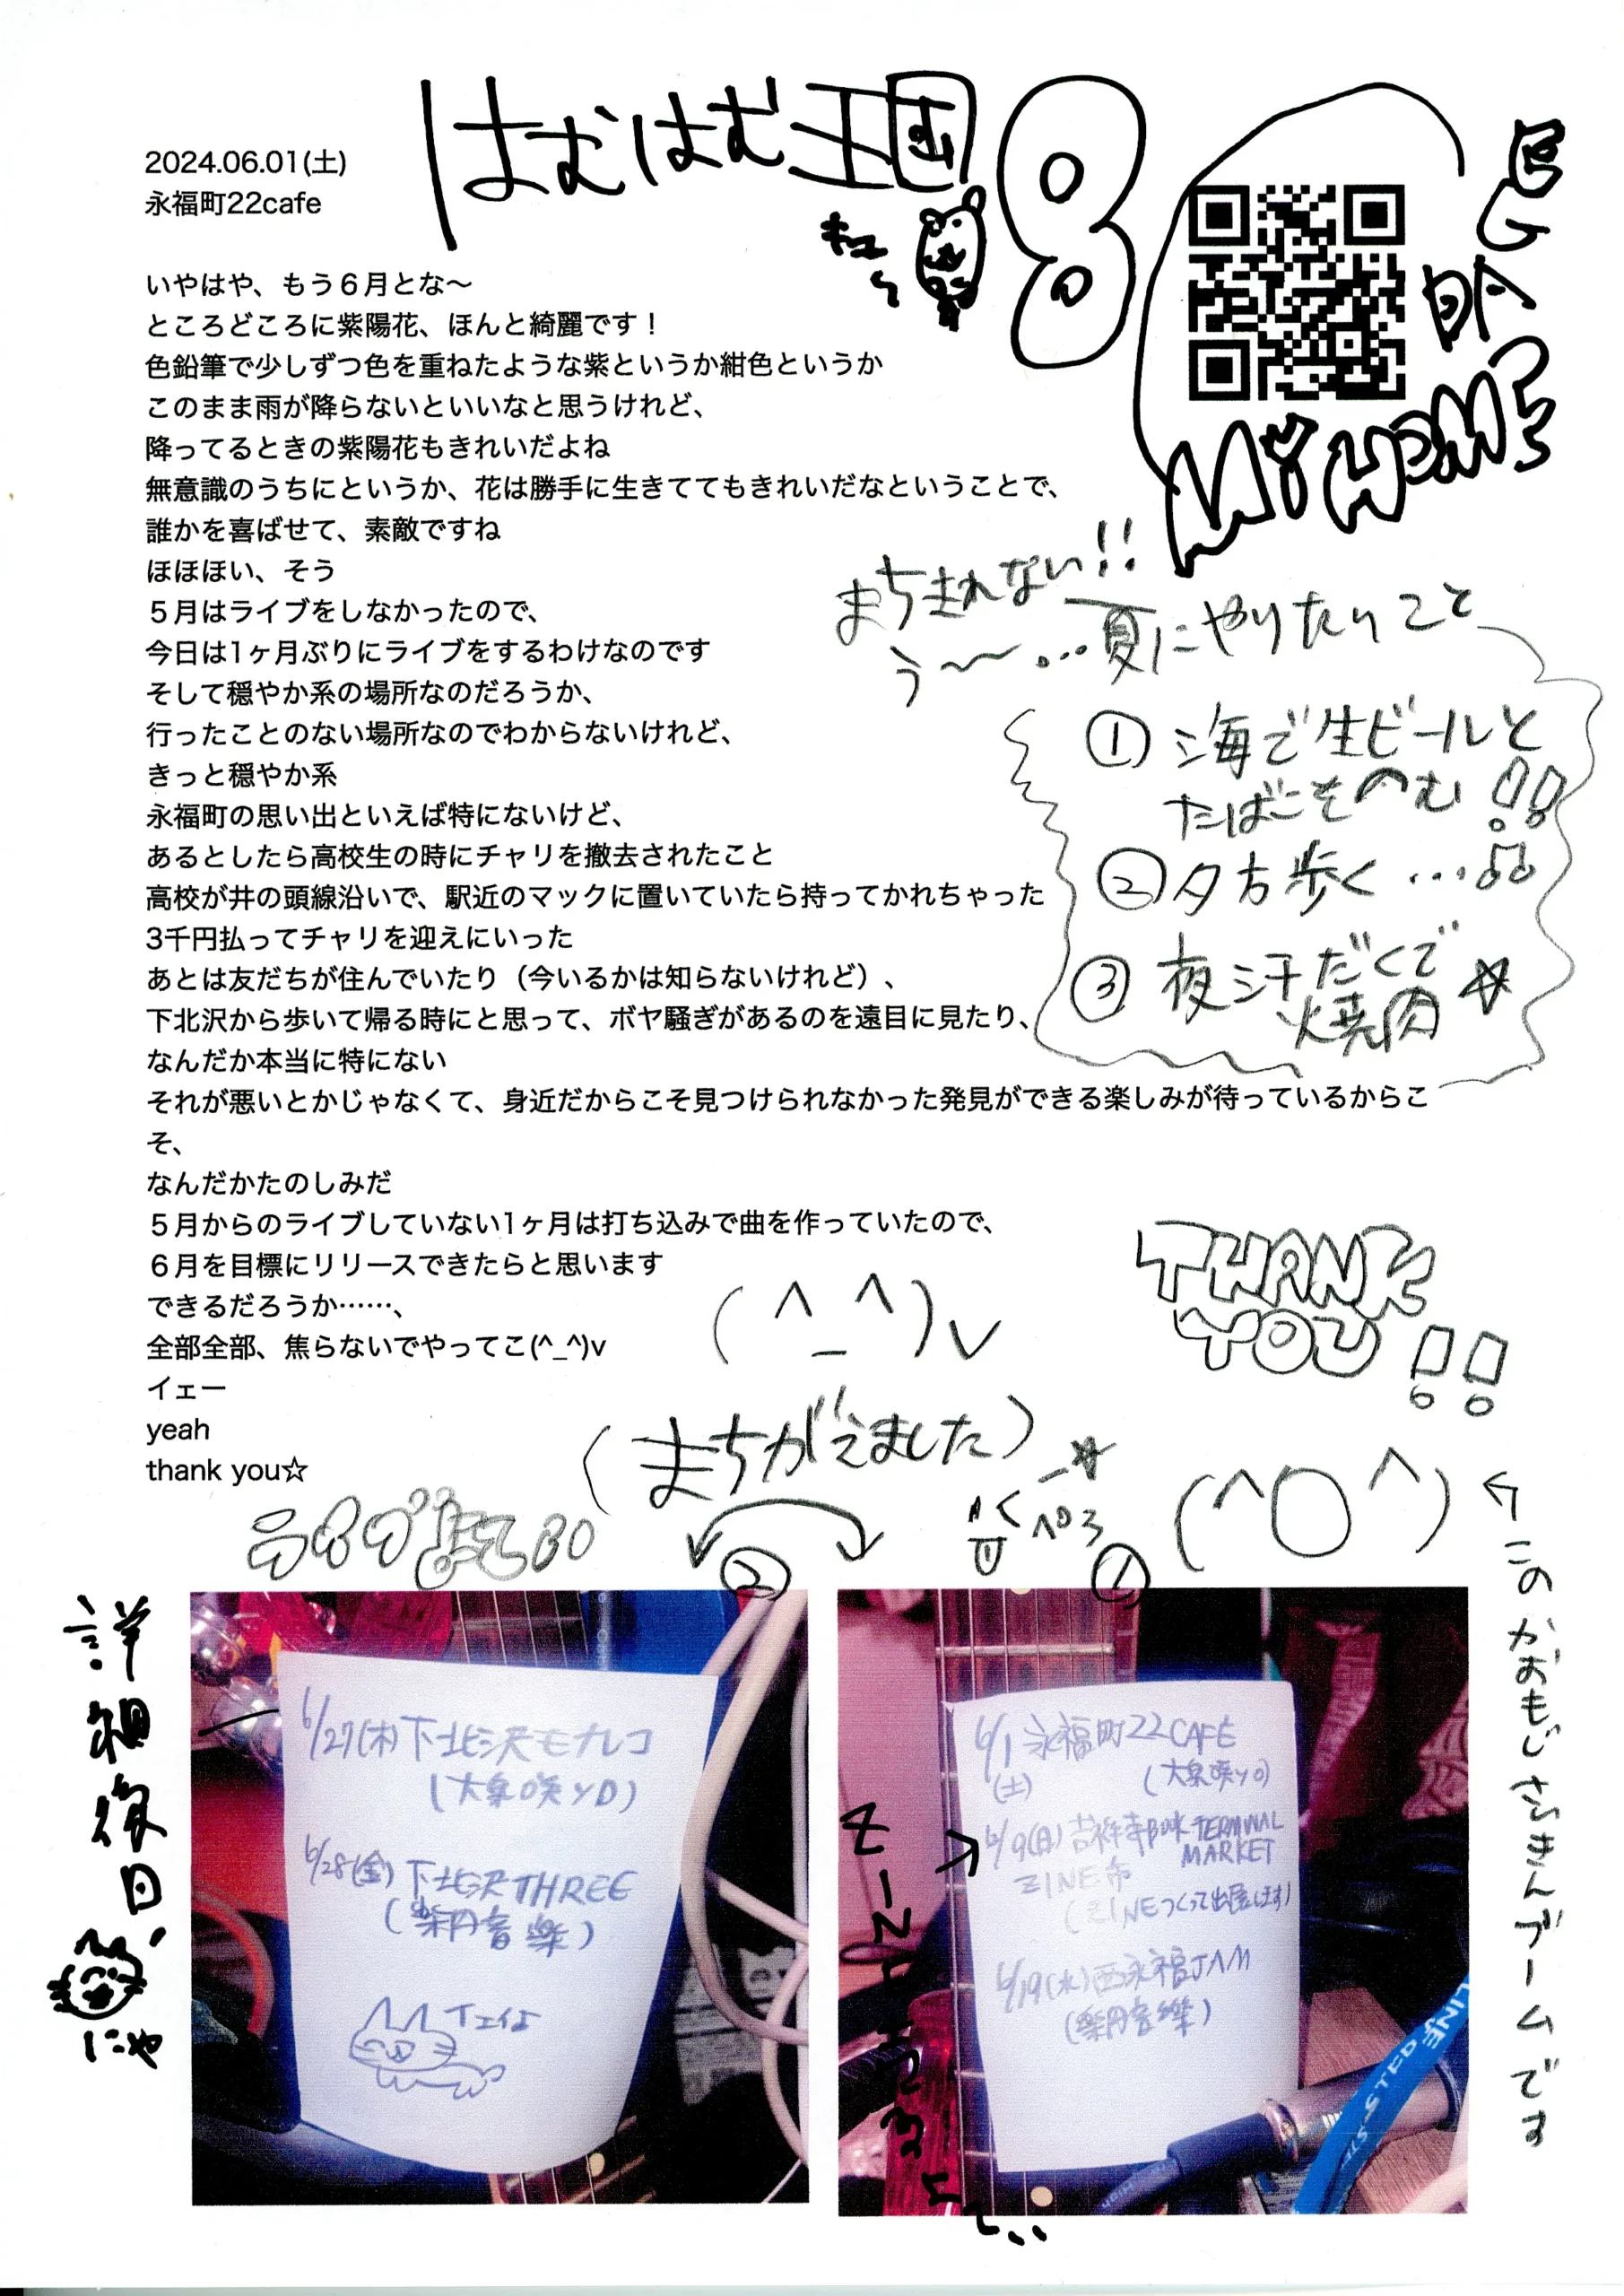 はむはむ王国
8
キュー
2024.06.01(土)
永福町22cafe
MY HOME
いやはや、もう６月とな〜
ところどころに紫陽花、ほんと綺麗です！
色鉛筆で少しずつ色を重ねたような紫というか紺色というか
このまま雨が降らないといいなと思うけれど、
降ってるときの紫陽花もきれいだよね
無意識のうちにというか、花は勝手に生きててもきれいだなということで、
誰かを喜ばせて、素敵ですね
ほほほい、そう
５月はライブをしなかったので、
今日は1ヶ月ぶりにライブをするわけなのです
そして穏やか系の場所なのだろうか、
行ったことのない場所なのでわからないけれど、
きっと穏やか系
永福町の思い出といえば特にないけど、
あるとしたら高校生の時にチャリを撤去されたこと
高校が井の頭線沿いで、駅近のマックに置いていたら持ってかれちゃった
3千円払ってチャリを迎えにいった
あとは友だちが住んでいたり（今いるかは知らないけれど）、
下北沢から歩いて帰る時にと思って、ボヤ騒ぎがあるのを遠目に見たり、
なんだか本当に特にない
それが悪いとかじゃなくて、身近だからこそ見つけられなかった発見ができる楽しみが待っているからこ
そ、
なんだかたのしみだ
５月からのライブしていない1ヶ月は打ち込みで曲を作っていたので、
６月を目標にリリースできたらと思います
できるだろうか……、
全部全部、焦らないでやってこ(^_^)v
イェー
yeah
thank you☆
まちきれない!!
う〜〜…夏にやりたいこと
① 海で生ビールと
たばこをのむ!!
② 夕方歩く…♫
③ 夜汗だくで
焼肉☆
THANK
YOU!!
(^_^)v
(まちがえました)
(^O^)
←このかおもじさいきんブームです
ライブ予定
②
①
詳細後日
にゃ
6/27(木)下北沢モナレコ
(大泉咲YO)
6/28(金)下北沢THREE
イェイよ
6/1 永福町22CAFE
(土)
(大泉咲YO)
6/9(日)吉祥寺BOOK TERMINAL
MARKET
ZINE市
(ZINEつくって出店します)
6/19(水)西永福JAM